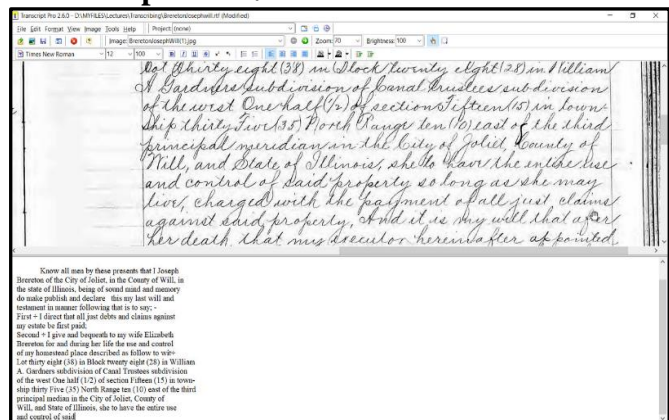 Transcript 2.6.0 - D:\MYFILES\Lectures\Transcribing\BreretonJosephwill.rtf (Modified)
File Edit Format View Image Tools Help Project: (none)
Image: BreretonJosephWill(1).jpg Zoom: 70 Brightness: 100
Times New Roman 12 100 B I U
Lot Thirty eight (38) in Block twenty eight (28) in William
A Gardners Subdivision of Canal Trustees subdivision
of the west One half (1/2) of section Fifteen (15) in town-
ship thirty Five (35) North Range ten (10) east of the third
principal meridian in the City of Joliet, County of
Will, and State of Illinois, she to have the entire use
and control of said property so long as she may
live, charged with the payment of all just claims
against said property, And it is my will that after
her death that my executor hereinafter appointed
Know all men by these presents that I Joseph
Brereton of the City of Joliet, in the County of Will, in
the state of Illinois, being of sound mind and memory
do make publish and declare this my last will and
testament in manner following that is to say; -
First + I direct that all just debts and claims against
my estate be first paid;
Second + I give and bequeath to my wife Elizabeth
Brereton for and during her life the use and control
of my homestead place described as follow to wit=
Lot thirty eight (38) in Block twenty eight (28) in William
A. Gardners subdivision of Canal Trustees subdivision
of the west One half (1/2) of section Fifteen (15) in town-
ship thirty Five (35) North Range ten (10) east of the third
principal median in the City of Joliet, County of
Will, and State of Illinois, she to have the entire use
and control of said